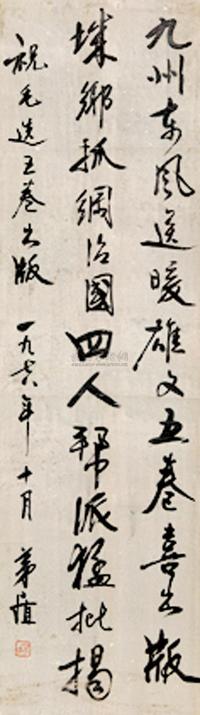 九州东风送暖雄文五卷喜出版
城鄉抓綱治國四人帮派猛批揭
祝毛选五卷出版 一九七六年十月 茅植